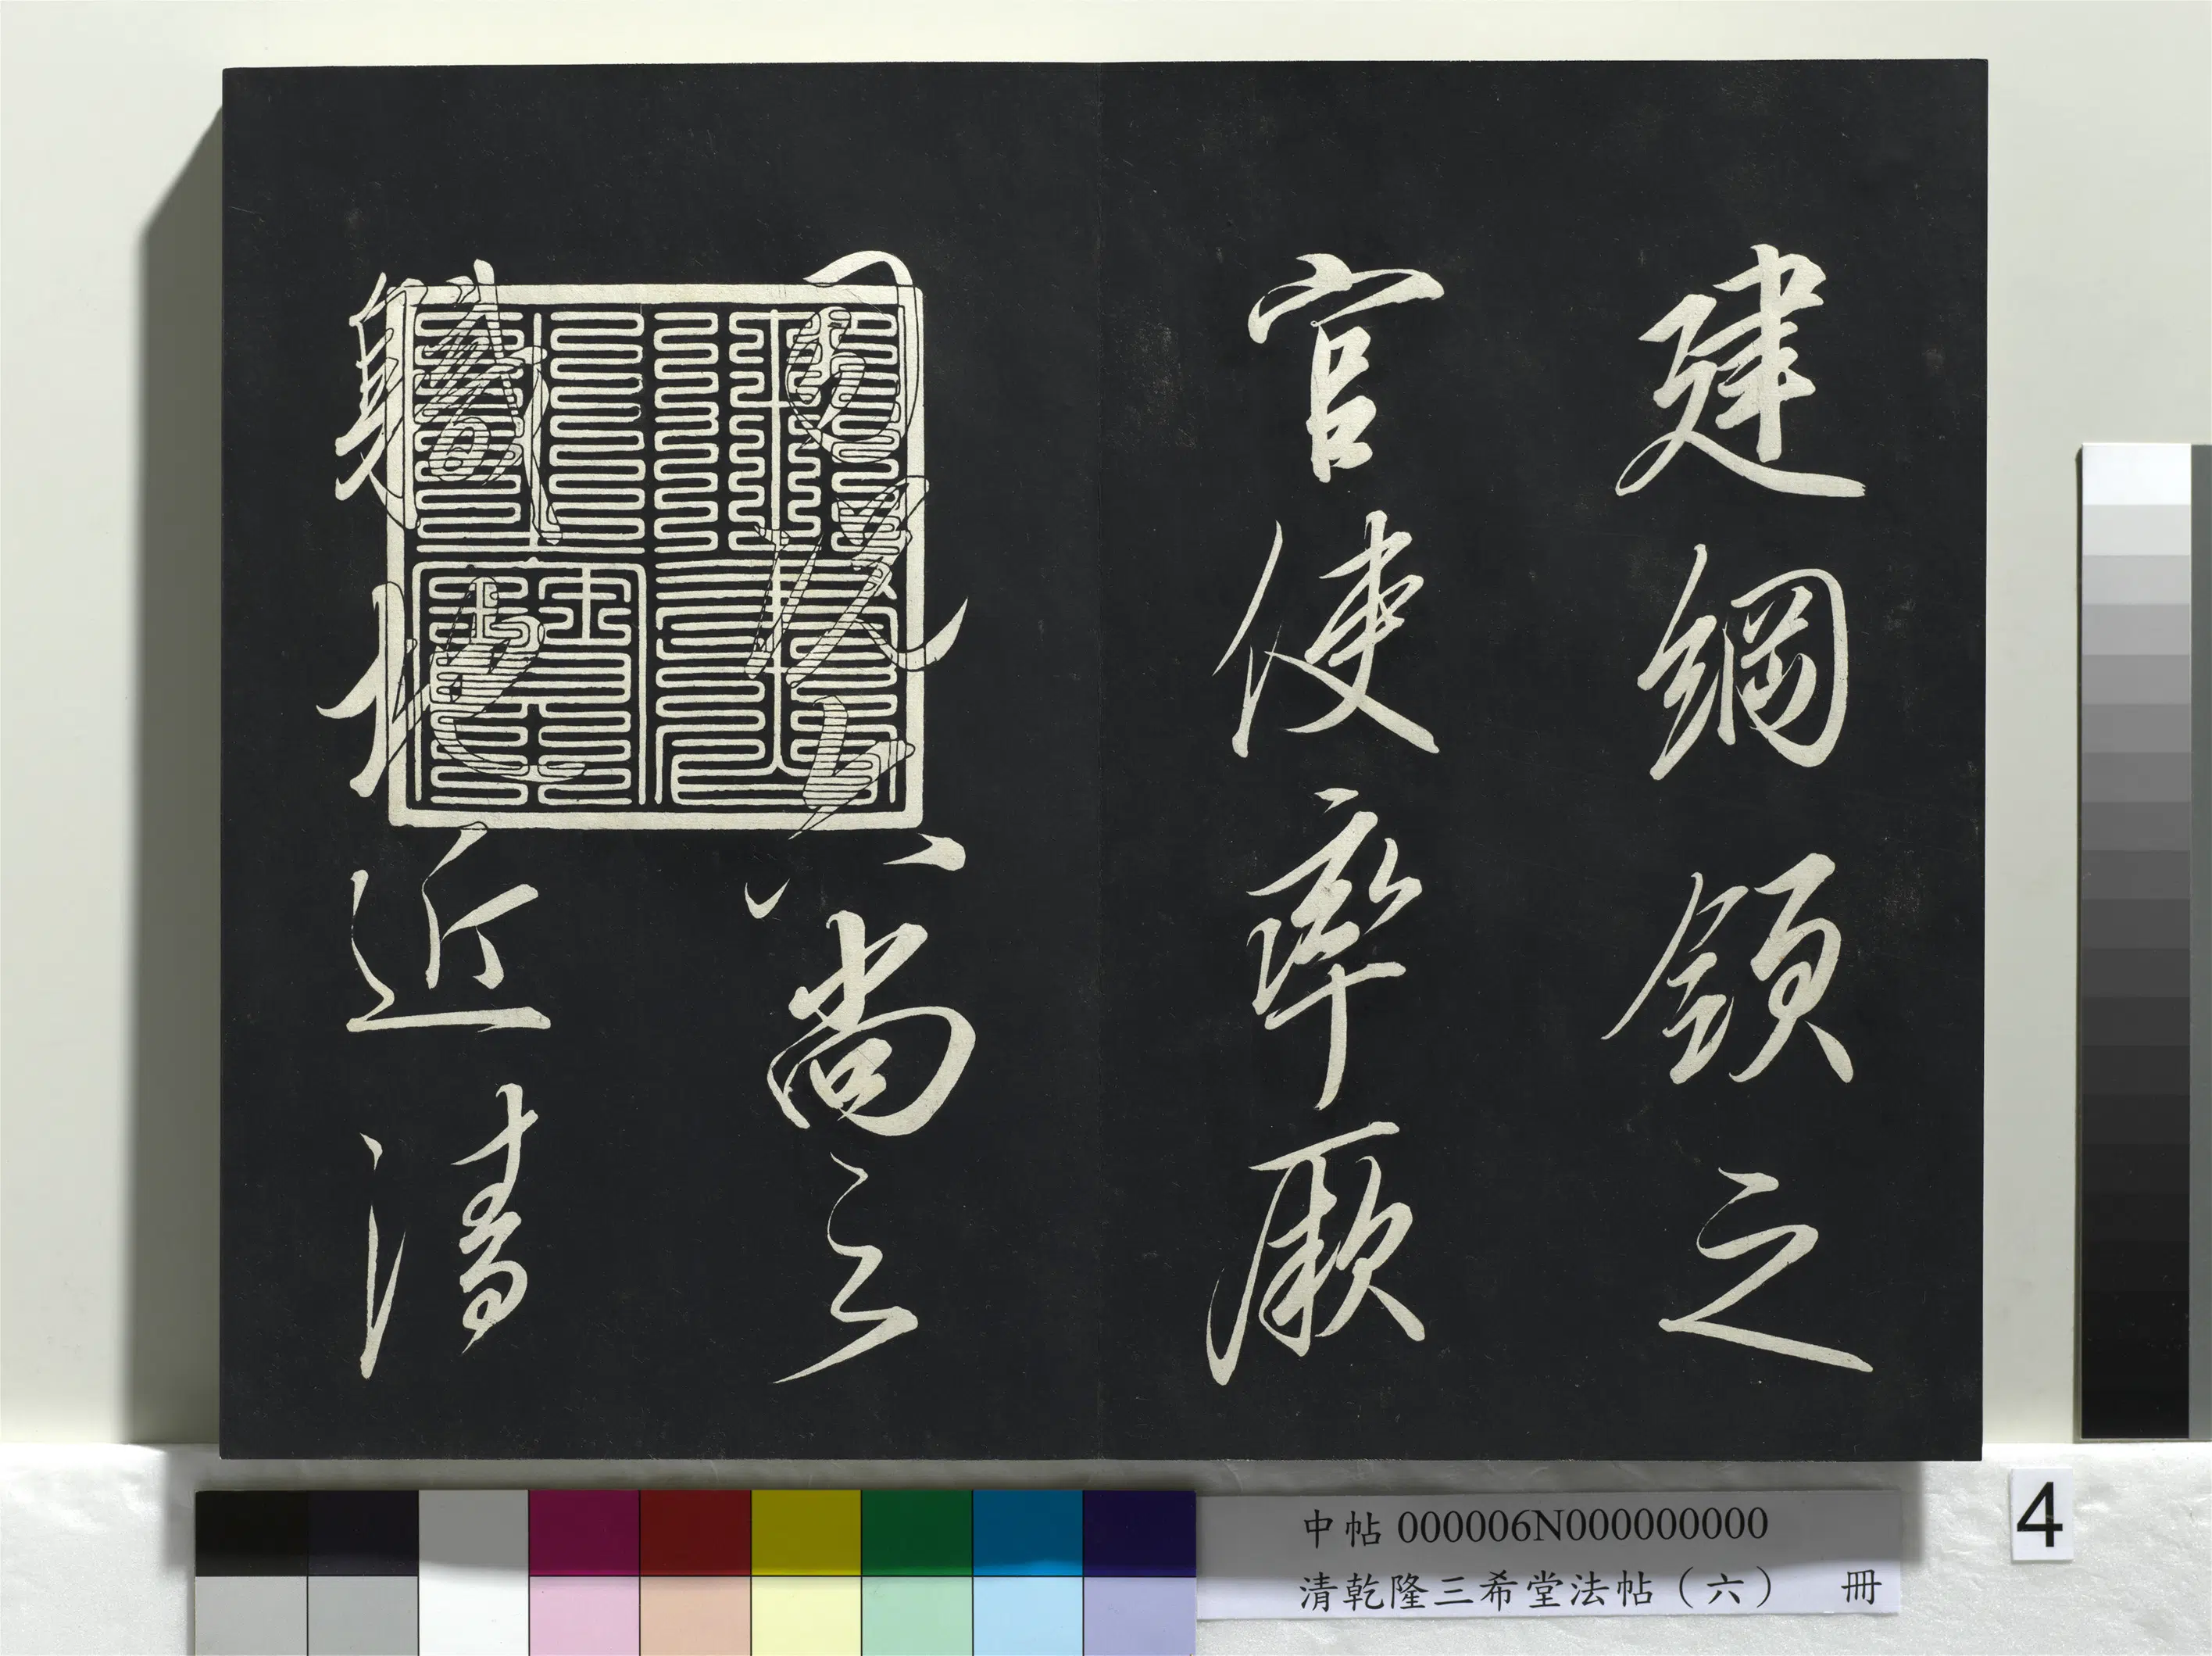 建綱領之
官使率厥
司況乎尚之
職地近清
中帖 000006N000000000
清乾隆三希堂法帖（六） 冊
4